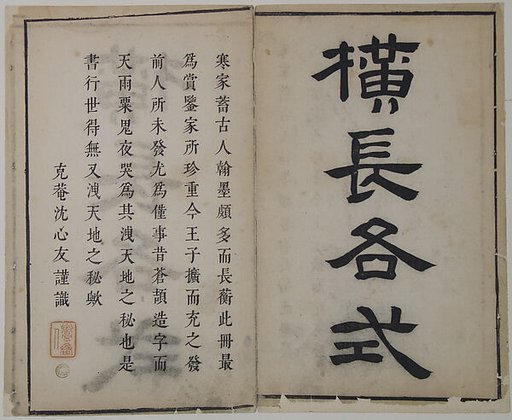 橫長各式
寒家蓄古人翰墨頗多而長蘅此冊最
為賞鑒家所珍重今王子擴而充之發
前人所未發尤為僅事昔蒼頡造字而
天雨粟鬼夜哭為其洩天地之秘也是
書行世得無又洩天地之秘歟
克菴沈心友謹識